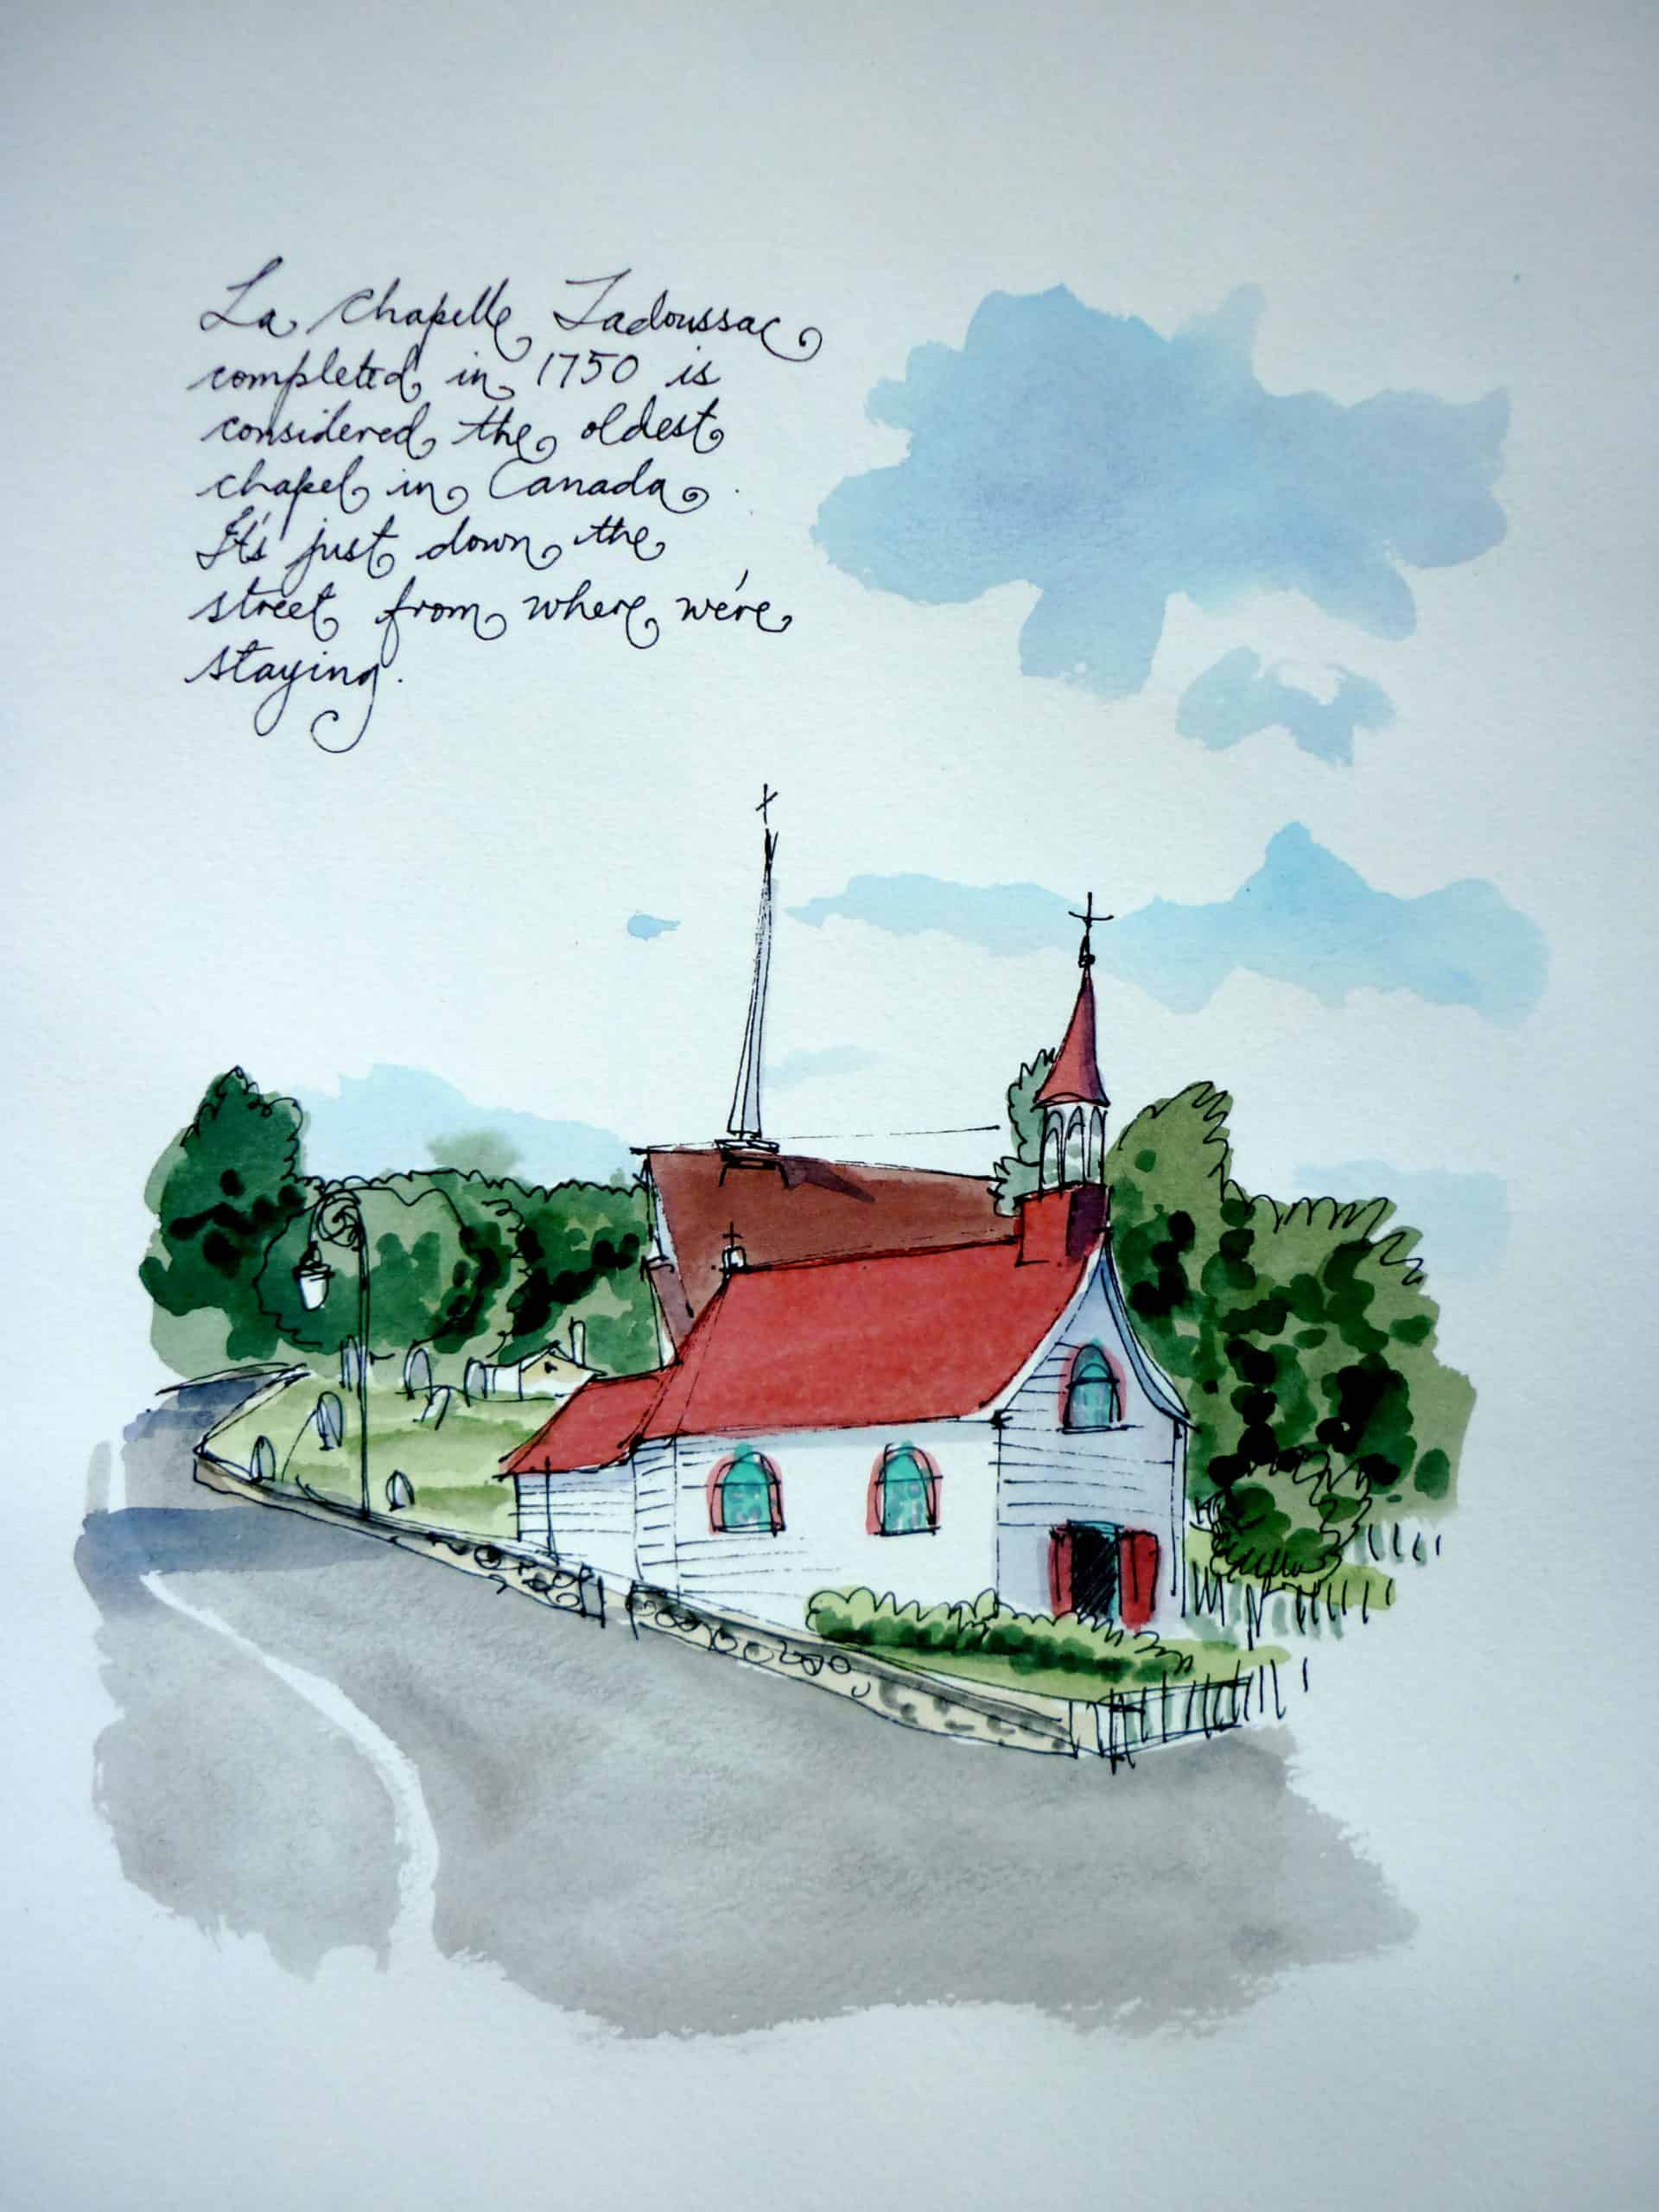 La Chapelle Tadoussac
completed in 1750 is
considered the oldest
chapel in Canada.
It's just down the
street from where we're
staying.